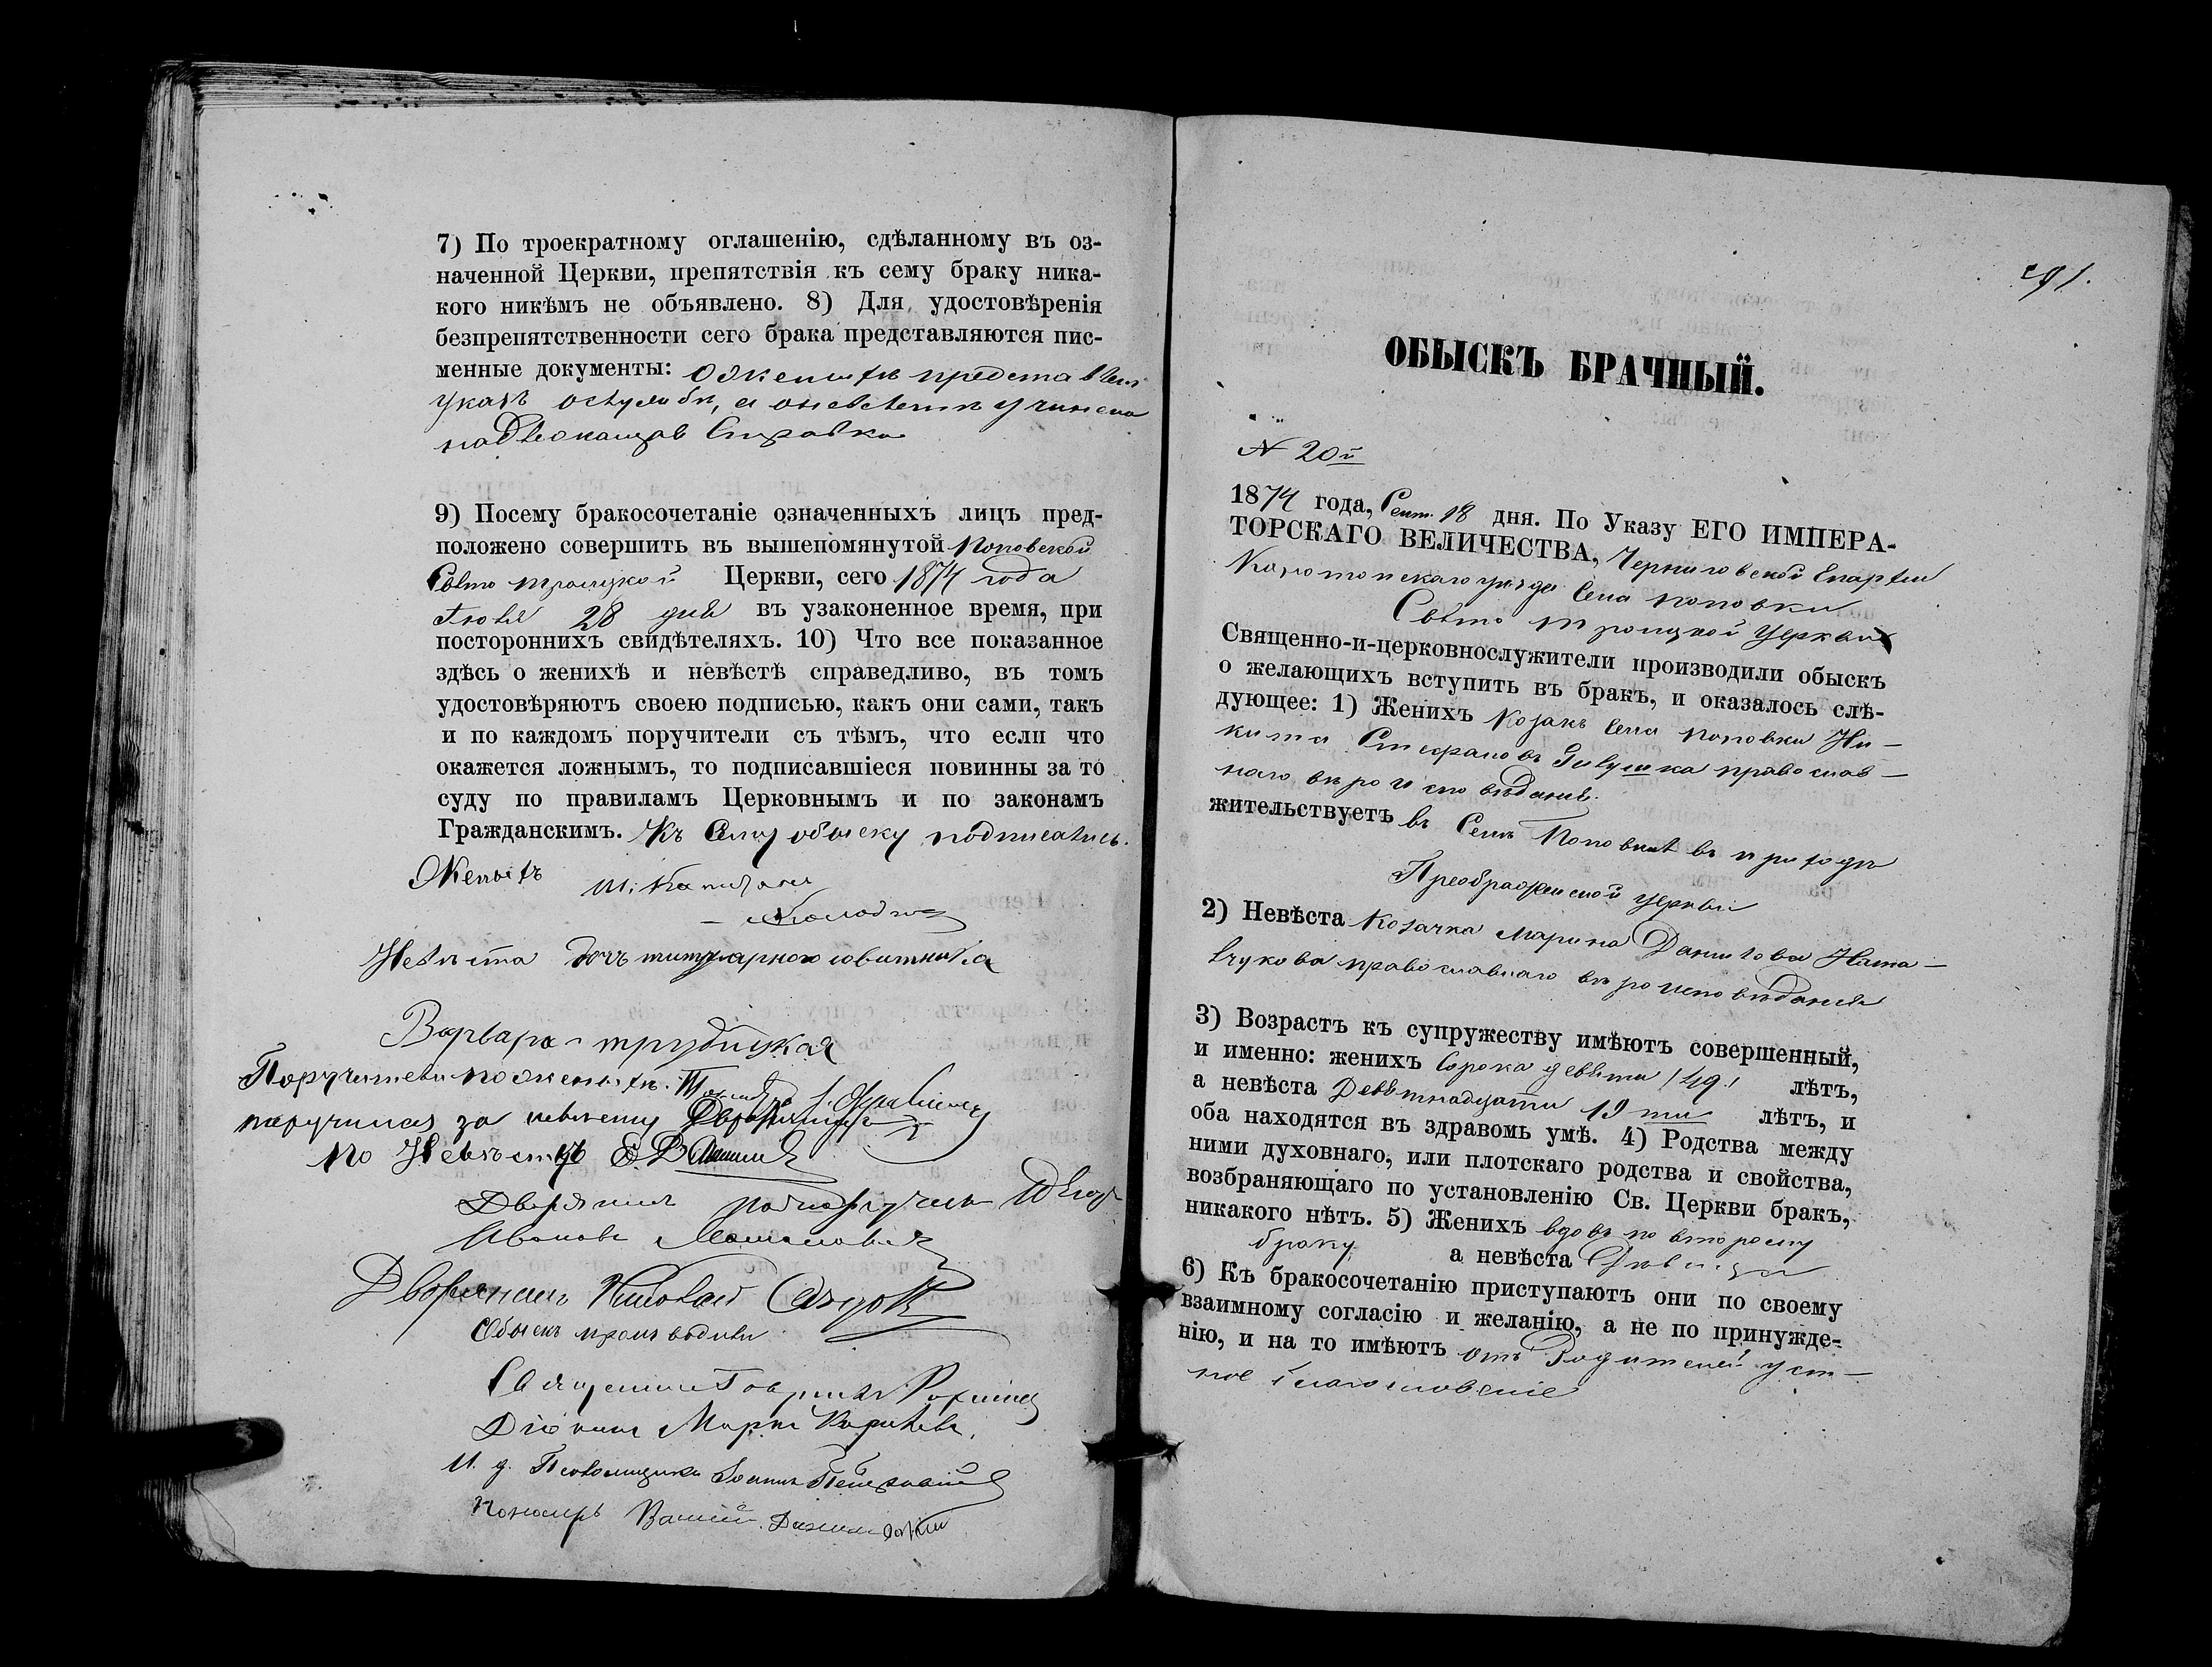 7) По троекратному оглашенію, сдѣланному въ оз-
наченной Церкви, препятствія къ сему браку ника-
кого никѣмъ не объявлено. 8) Для удостовѣренія
безпрепятственности сего брака представляются пис-
менные документы: О женихѣ представленъ
указъ а о невѣстѣ учинена
Справка
9) Посему бракосочетаніе означенныхъ лицъ пред-
положено совершить въ вышепомянутой Поповской
Свято Троицкой Церкви, сего 1874 года
Іюля 28 дня въ узаконенное время, при
постороннихъ свидѣтеляхъ. 10) Что все показанное
здѣсь о женихѣ и невѣстѣ справедливо, въ томъ
удостовѣряютъ своею подписью, какъ они сами, такъ
и по каждомъ поручители съ тѣмъ, что если что
окажется ложнымъ, то подписавшіеся повинны за то
суду по правиламъ Церковнымъ и по законамъ
Гражданскимъ. Къ Сему обыску подписались.
Женихъ
Невѣста дочь титулярного совитника
Варвара Трубицкая
Поручители по женихѣ.
поручился за невесту
По Невѣстѣ
Дворянинъ
Дворянинъ Николай
Обыскъ производили
Священникъ Гавриилъ
Діяконъ Марко
И. д. Псаломщика Іоаннъ
Пономарь
91.
ОБЫСКЪ БРАЧНЫЙ.
№ 20й
1874 года, Сент. 18 дня. По Указу ЕГО ИМПЕРА-
ТОРСКАГО ВЕЛИЧЕСТВА, Черниговской Епархіи
Конотопскаго уѣзда Села Поповки
Свято Троицкой Церкви
Священно-и-церковнослужители производили обыскъ
о желающихъ вступить въ бракъ, и оказалось слѣ-
дующее: 1) Женихъ Козакъ Села Поповки Ни-
кита Стефановъ православ-
наго вѣроисповѣданія.
жительствуетъ въ Селѣ Поповкѣ въ приходѣ
Преображенской церкви
2) Невѣста Козачка Марина Данилова Ната-
православнаго вѣроисповѣданія
3) Возрастъ къ супружеству имѣютъ совершенный,
и именно: женихъ Сорока девяти (49.) лѣтъ,
а невѣста Девятнадцати 19 ти лѣтъ, и
оба находятся въ здравомъ умѣ. 4) Родства между
ними духовнаго, или плотскаго родства и свойства,
возбраняющаго по установленію Св. Церкви бракъ,
никакого нѣтъ. 5) Женихъ вдовъ по второму
браку а невѣста Дѣвица
6) Къ бракосочетанію приступаютъ они по своему
взаимному согласію и желанію, а не по принужде-
нію, и на то имѣютъ отъ Родителей уст-
ное благословеніе